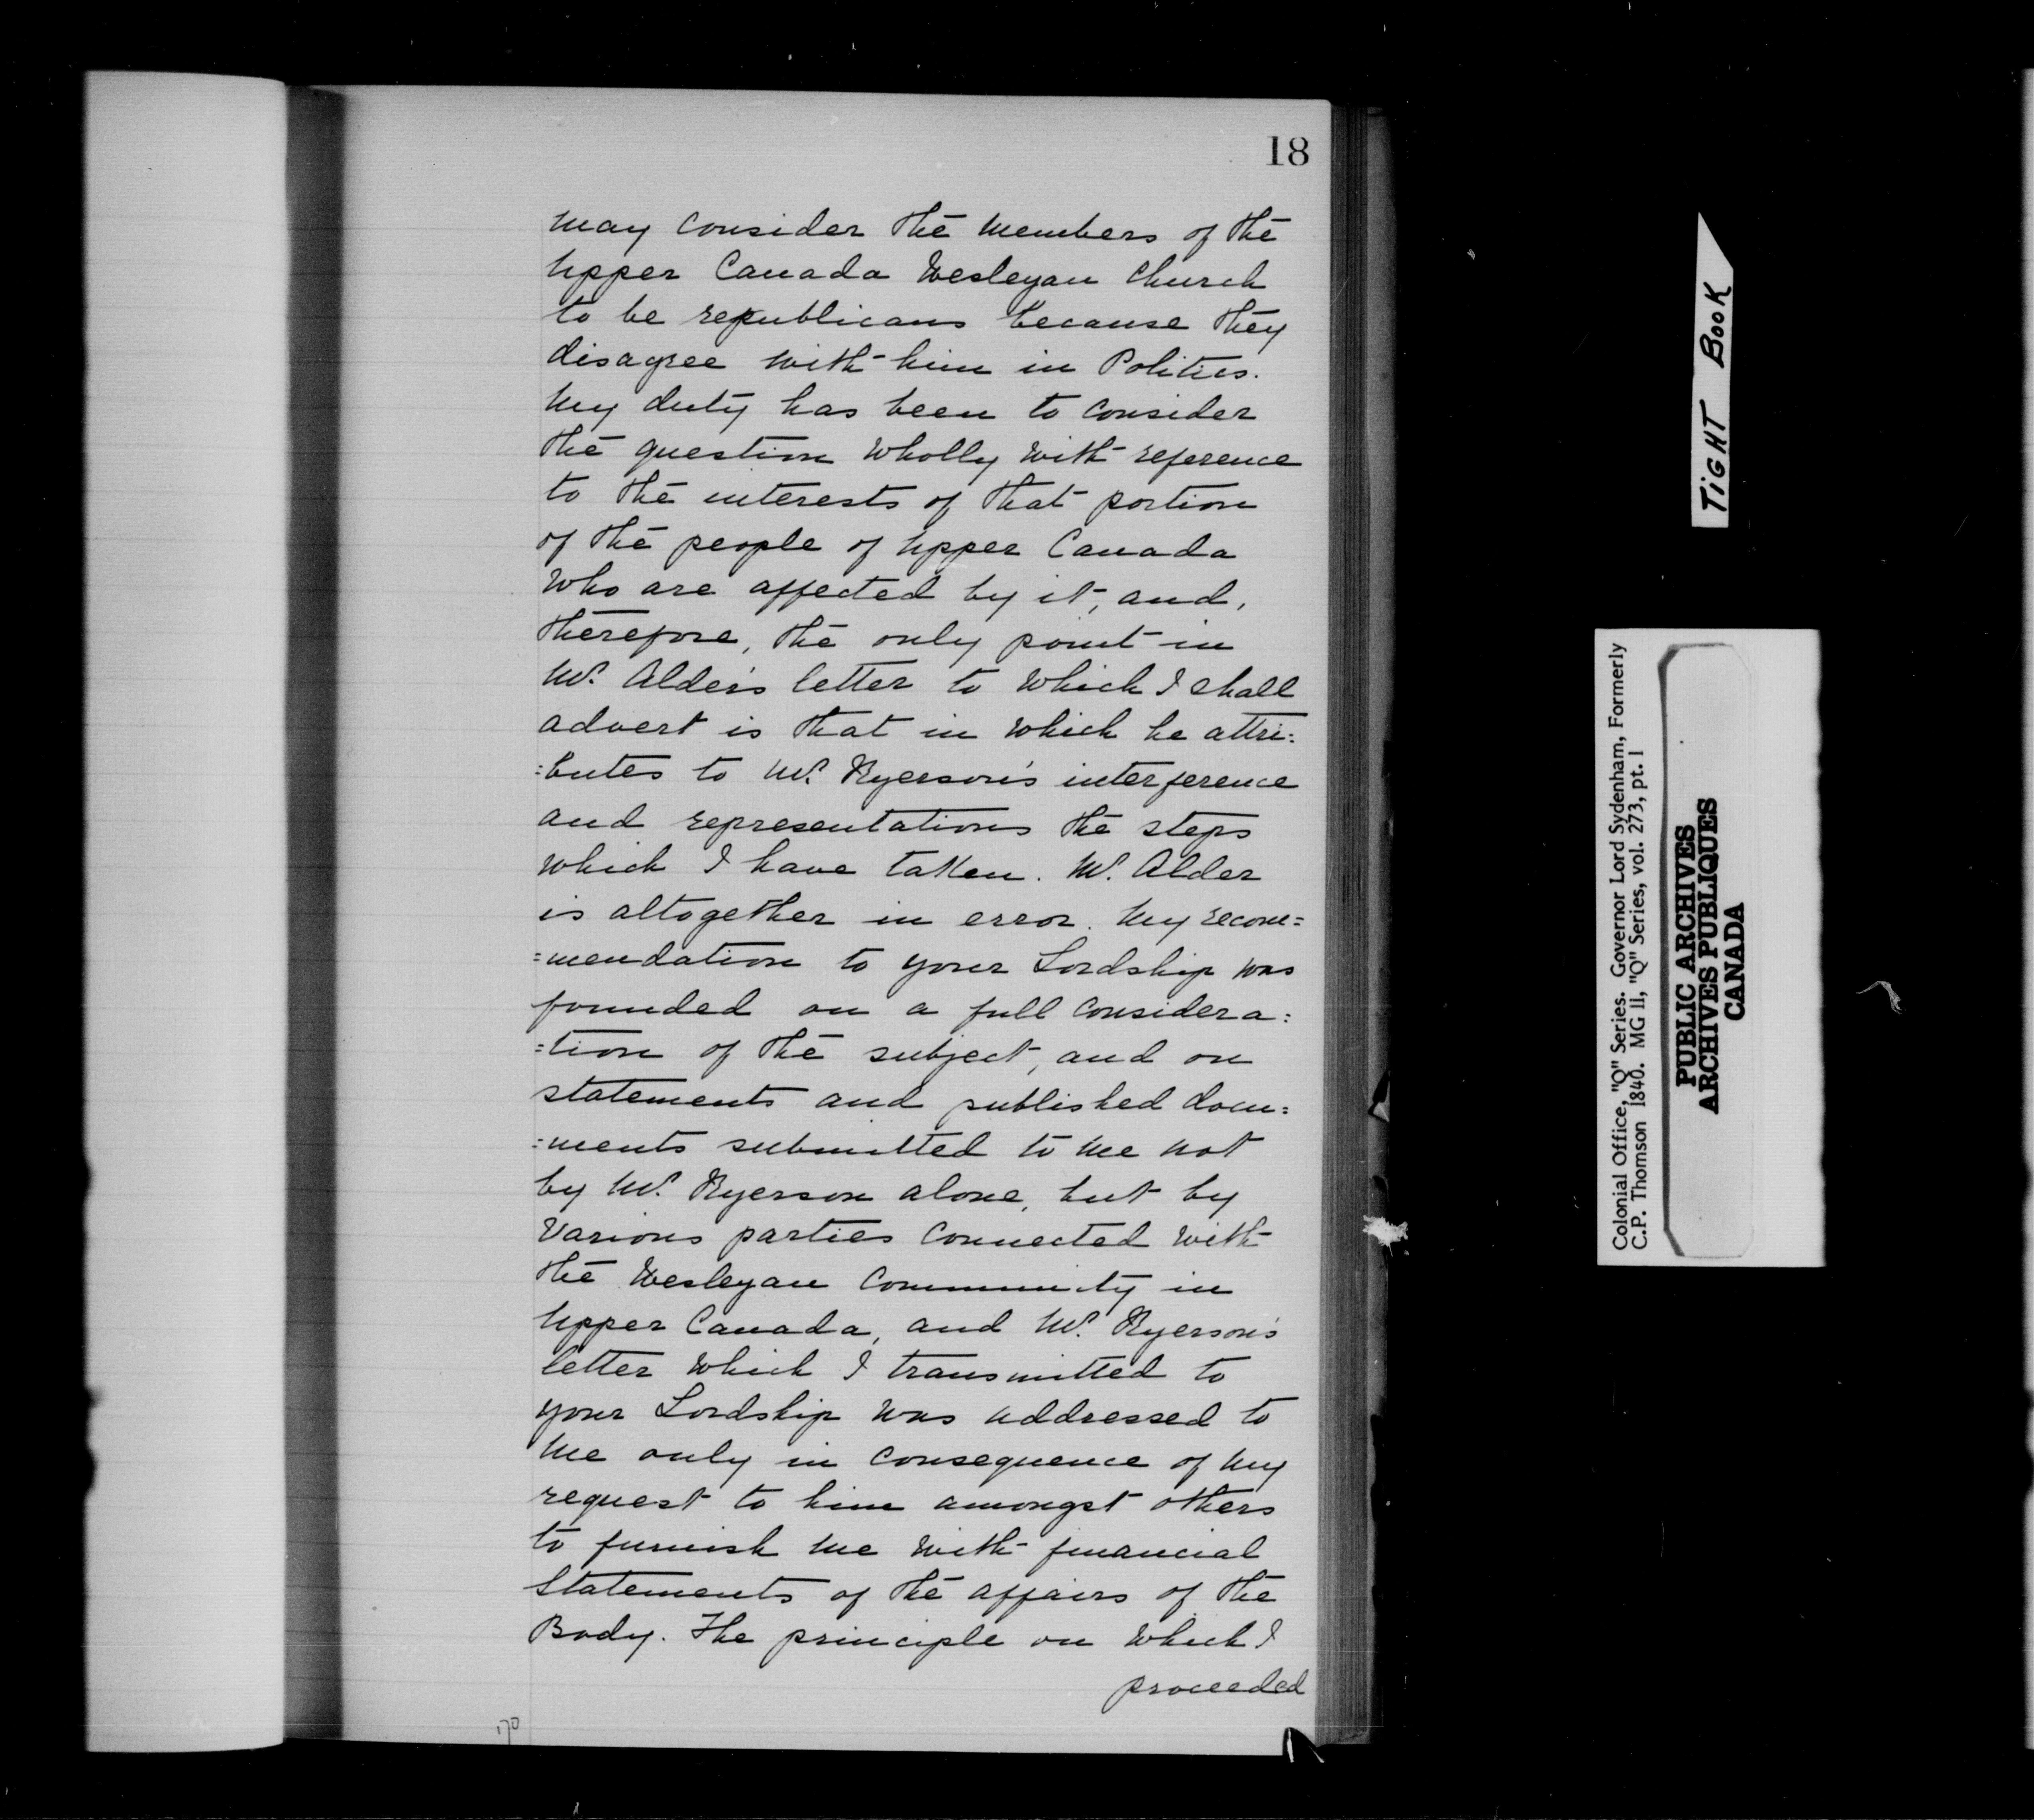 18
May consider the Members of the
Upper Canada Wesleyan Church
to be republicans because they
disagree with him in Politics.
My duty has been to consider
the question wholly with reference
to the interests of that portion
of the people of Upper Canada
who are affected by it, and,
therefore, the only point in
Mr. Alder's letter to which I shall
advert is that in which he attri:
:butes to Mr. Ryerson's interference
and representations the steps
which I have taken. Mr. Alder
is altogether in error. My recom=
=mendation to your Lordship was
founded on a full considera:
:tion of the subject, and on
statements and published docu:
:ments submitted to me not
by Mr. Ryerson alone, but by
various parties connected with
the Wesleyan Community in
Upper Canada, and Mr. Ryerson's
letter which I transmitted to
your Lordship was addressed to
me only in consequence of my
request to him amongst others
to furnish me with financial
Statements of the affairs of the
Body. The principle on which I
proceeded
170
TIGHT BOOK
Colonial Office, "Q" Series. Governor Lord Sydenham, Formerly
C.P. Thomson 1840. MG 11, "Q" Series, vol. 273, pt. 1
PUBLIC ARCHIVES
ARCHIVES PUBLIQUES
CANADA